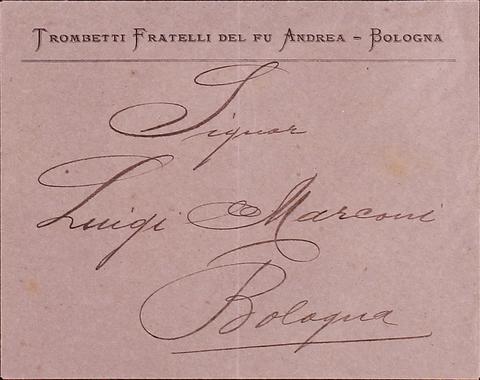 Trombetti Fratelli del fu Andrea – Bologna
Signor
Luigi Marconi
Bologna